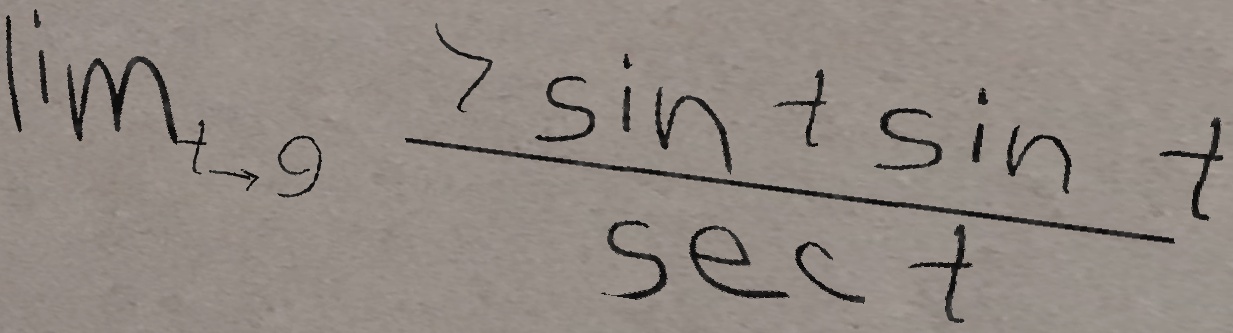 lim t→9 7 sin t sin t / sec t